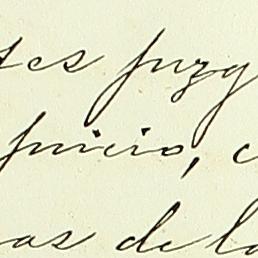 tes juzg
juicio, c
as de la